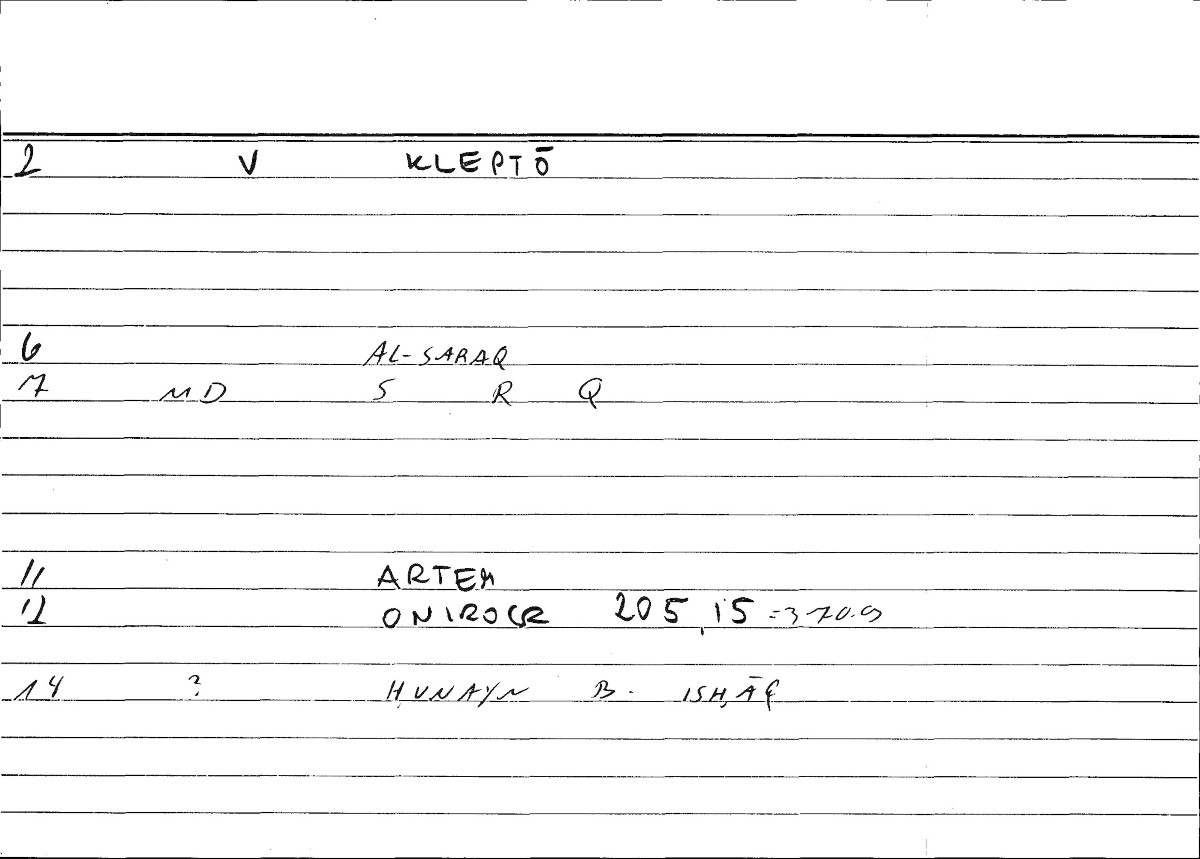 2 V KLEPTŌ
6 AL-SARAQ
7 MD S R Q
11 ARTEM
12 ONIROCR 205,15 =370.9
14 ? ḤUNAYN B. ISḤĀQ